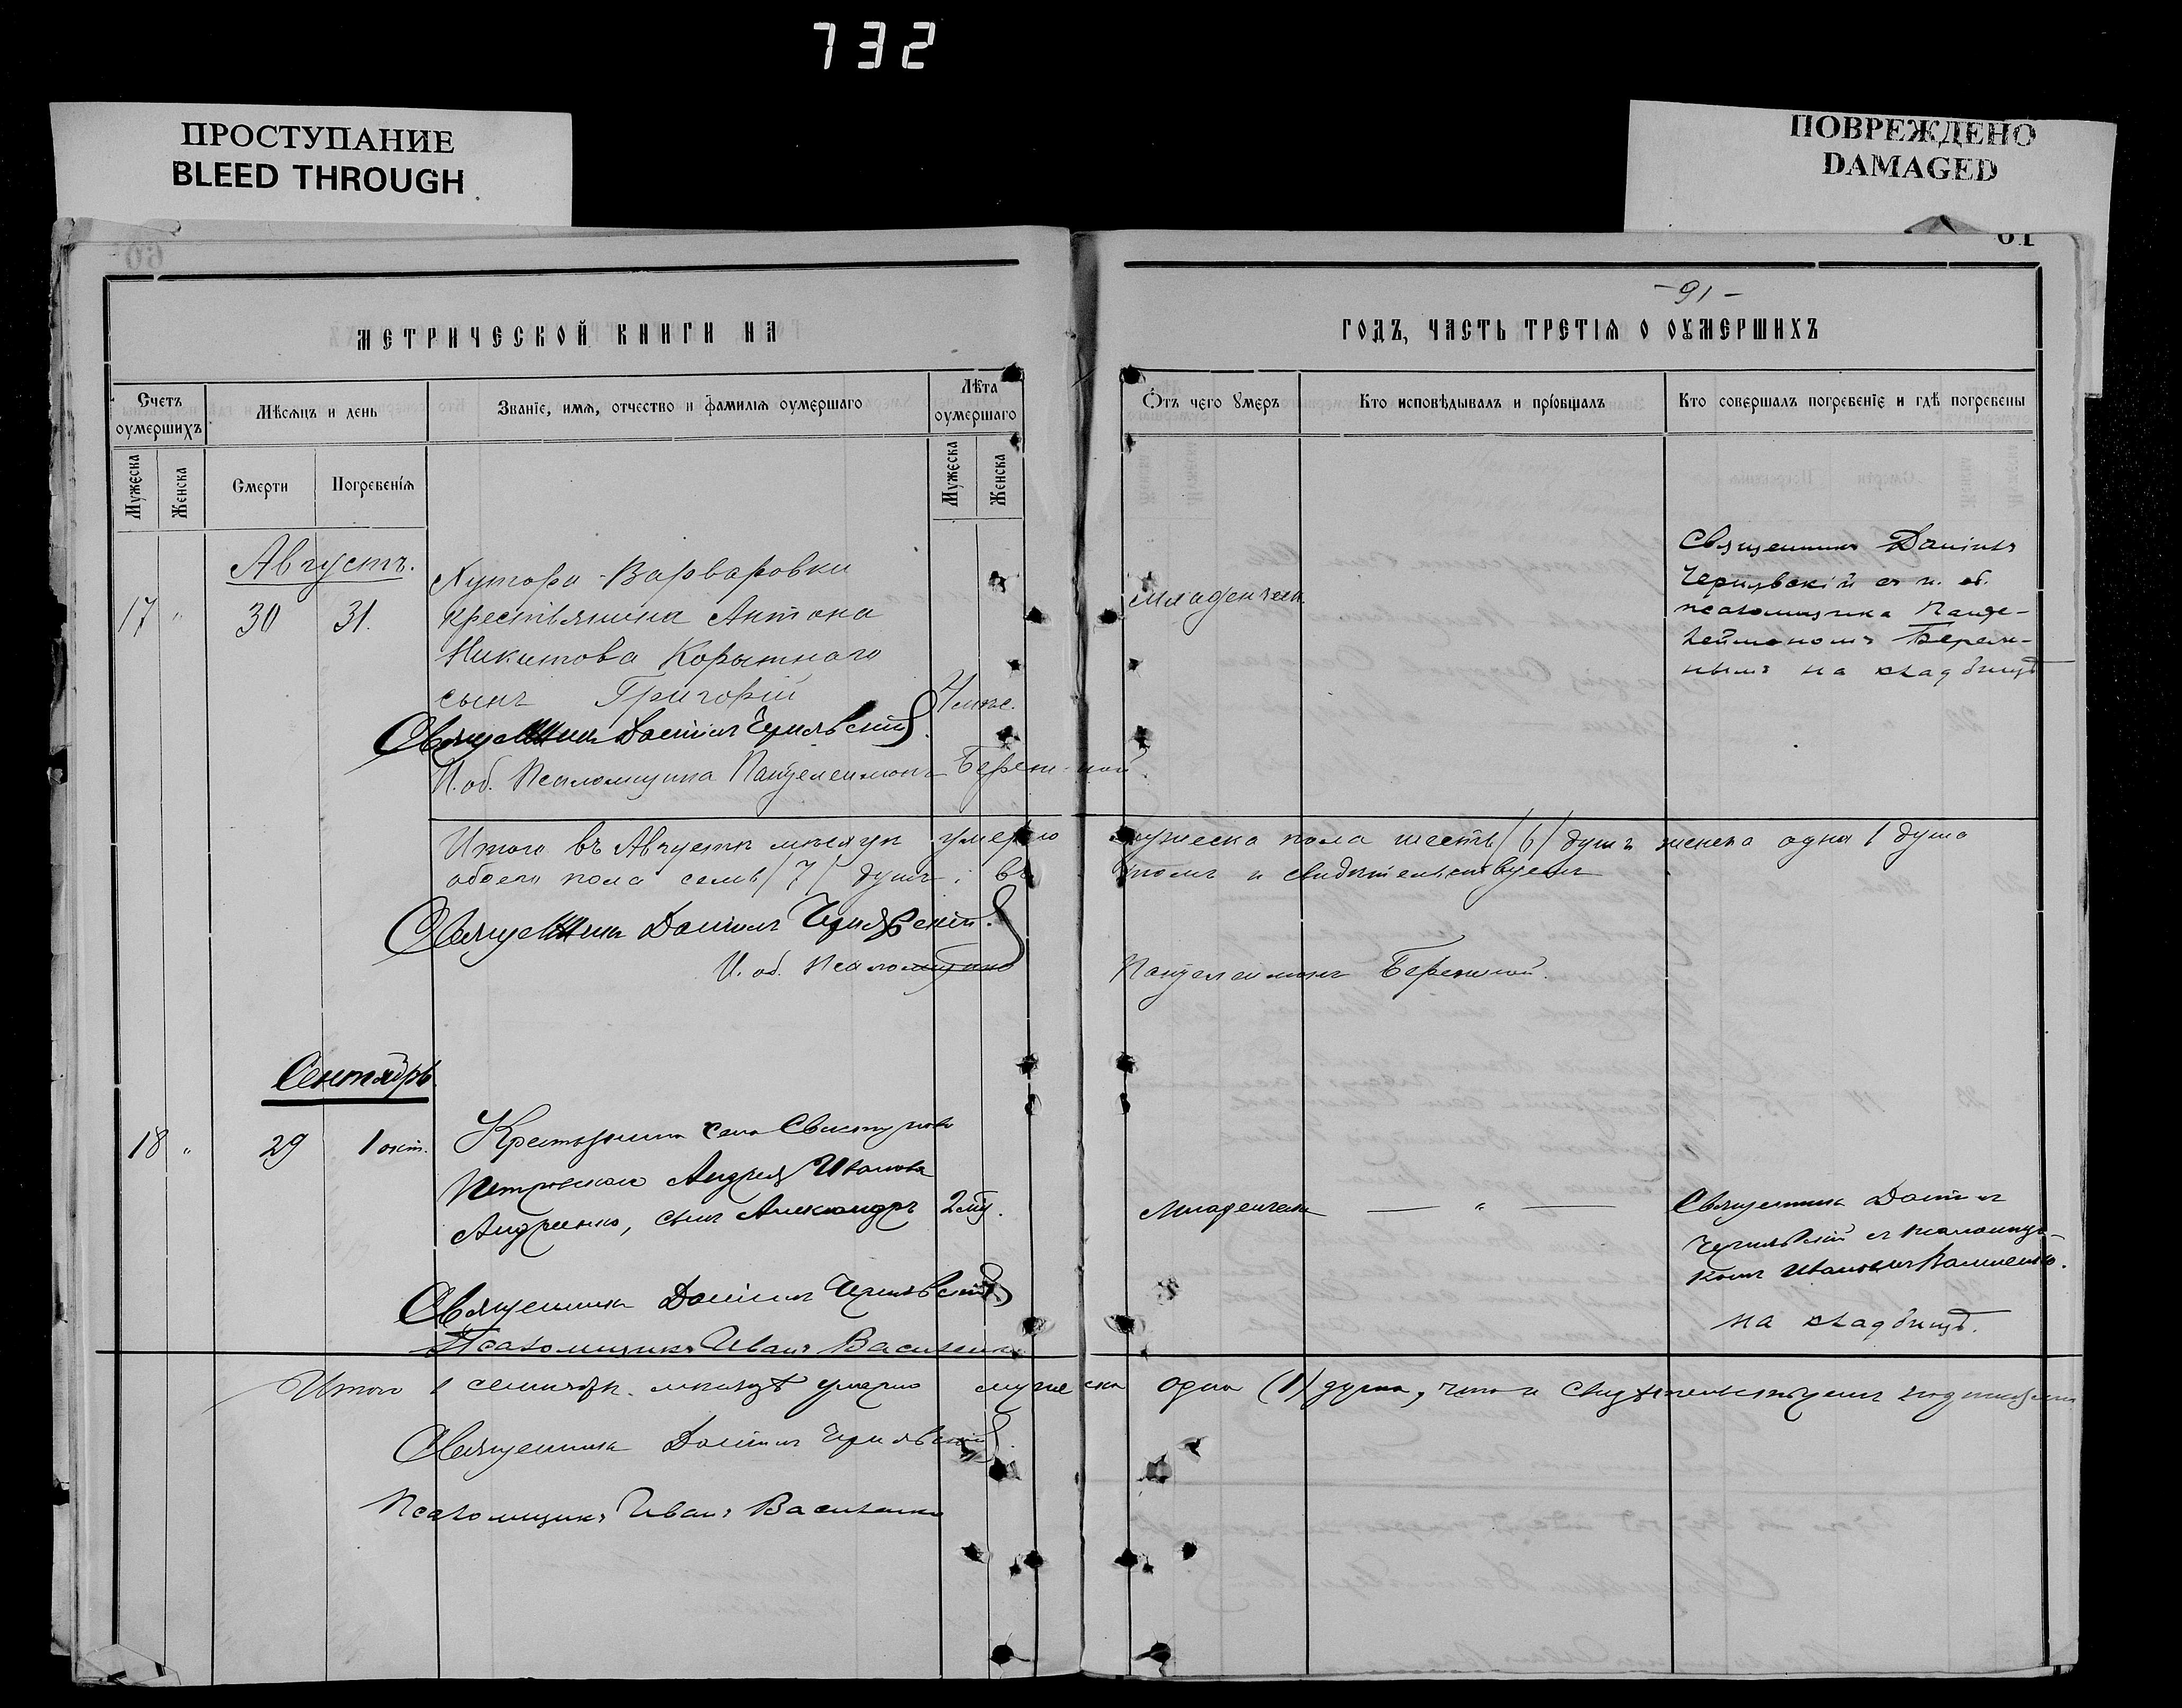 732
ПРОСТУПАНИЕ
BLEED THROUGH
ПОВРЕЖДЕНО
DAMAGED
60
61
МЕТРИЧЕСКОЙ КНИГИ НА
Счетъ оумершихъ
Мѣсяцъ и день
Званіе, имя, отчество и фамилія оумершаго
Лѣта оумершаго
Мужеска
Женска
Смерти
Погребенія
Мужеска
Женска
Августъ.
17 " 30 31.
Хутора Варваровки
крестьянина Антона
Никитова Корытнаго
сынъ Григорій
4 мѣс.
Священникъ Даніилъ Чернявскій
И. об. Псаломщика Пантелеимонъ Бережной.
Итого въ Августѣ мѣсяцѣ умерло
обоего пола семь /7/ душъ; въ
Священникъ Даніилъ Чернявскій.
И. об. Псаломщика
Сентябрь
18 " 29 1 окт.
Крестьянина села Свистунова
Петровскаго Андрея Иванова
Андреенко, сынъ Александръ
Священникъ Даніилъ Чернявскій
Псаломщикъ Иванъ Василенко
Итого в сентябрѣ мѣсяцѣ умерло мужеска
Священникъ Даніилъ Чернявскій
Псаломщикъ Иванъ Василенко
- 91 -
ГОДЪ, ЧАСТЬ ТРЕТІЯ О ОУМЕРШИХЪ
Отъ чего умеръ
Кто исповѣдывалъ и пріобщалъ
Кто совершалъ погребеніе и гдѣ погребены
Младенческ.
Священникъ Даніилъ
Чернявскій съ и. об.
псаломщика Панте-
леймономъ Береж-
нымъ на кладбищѣ
мужеска пола шесть /6/ душъ женска одна 1 душа
томъ и свидѣтельствуемъ
Пантелеимонъ Бережной.
Младенческ — " —
Священникъ Даніилъ
Чернявскій съ псаломщи-
комъ Иваномъ Василенко.
на кладбищѣ.
одна (1) душа, что и свидѣтельствуемъ подписями